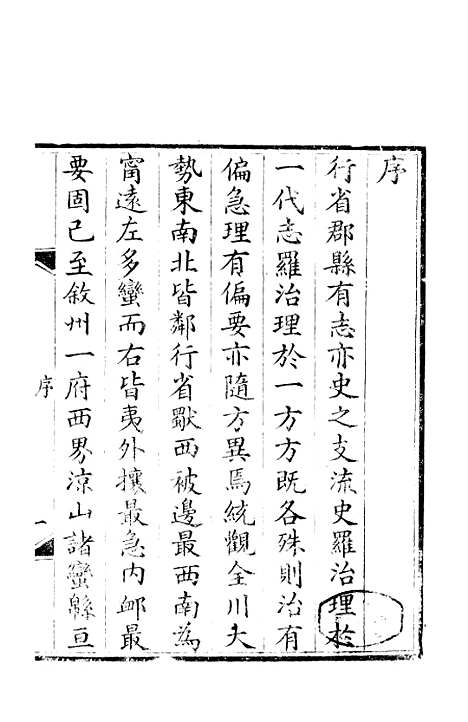 序
行省郡縣有志亦史之支流史羅治理於
一代志羅治理於一方方既各殊則治有
偏急理有偏要亦隨方異焉統觀全川大
勢東南北皆鄰行省獸西被邊最西南為
甯遠左多蠻而右皆夷外攘最急內卹最
要固已至敘州一府西界涼山諸蠻緜亘
序
一